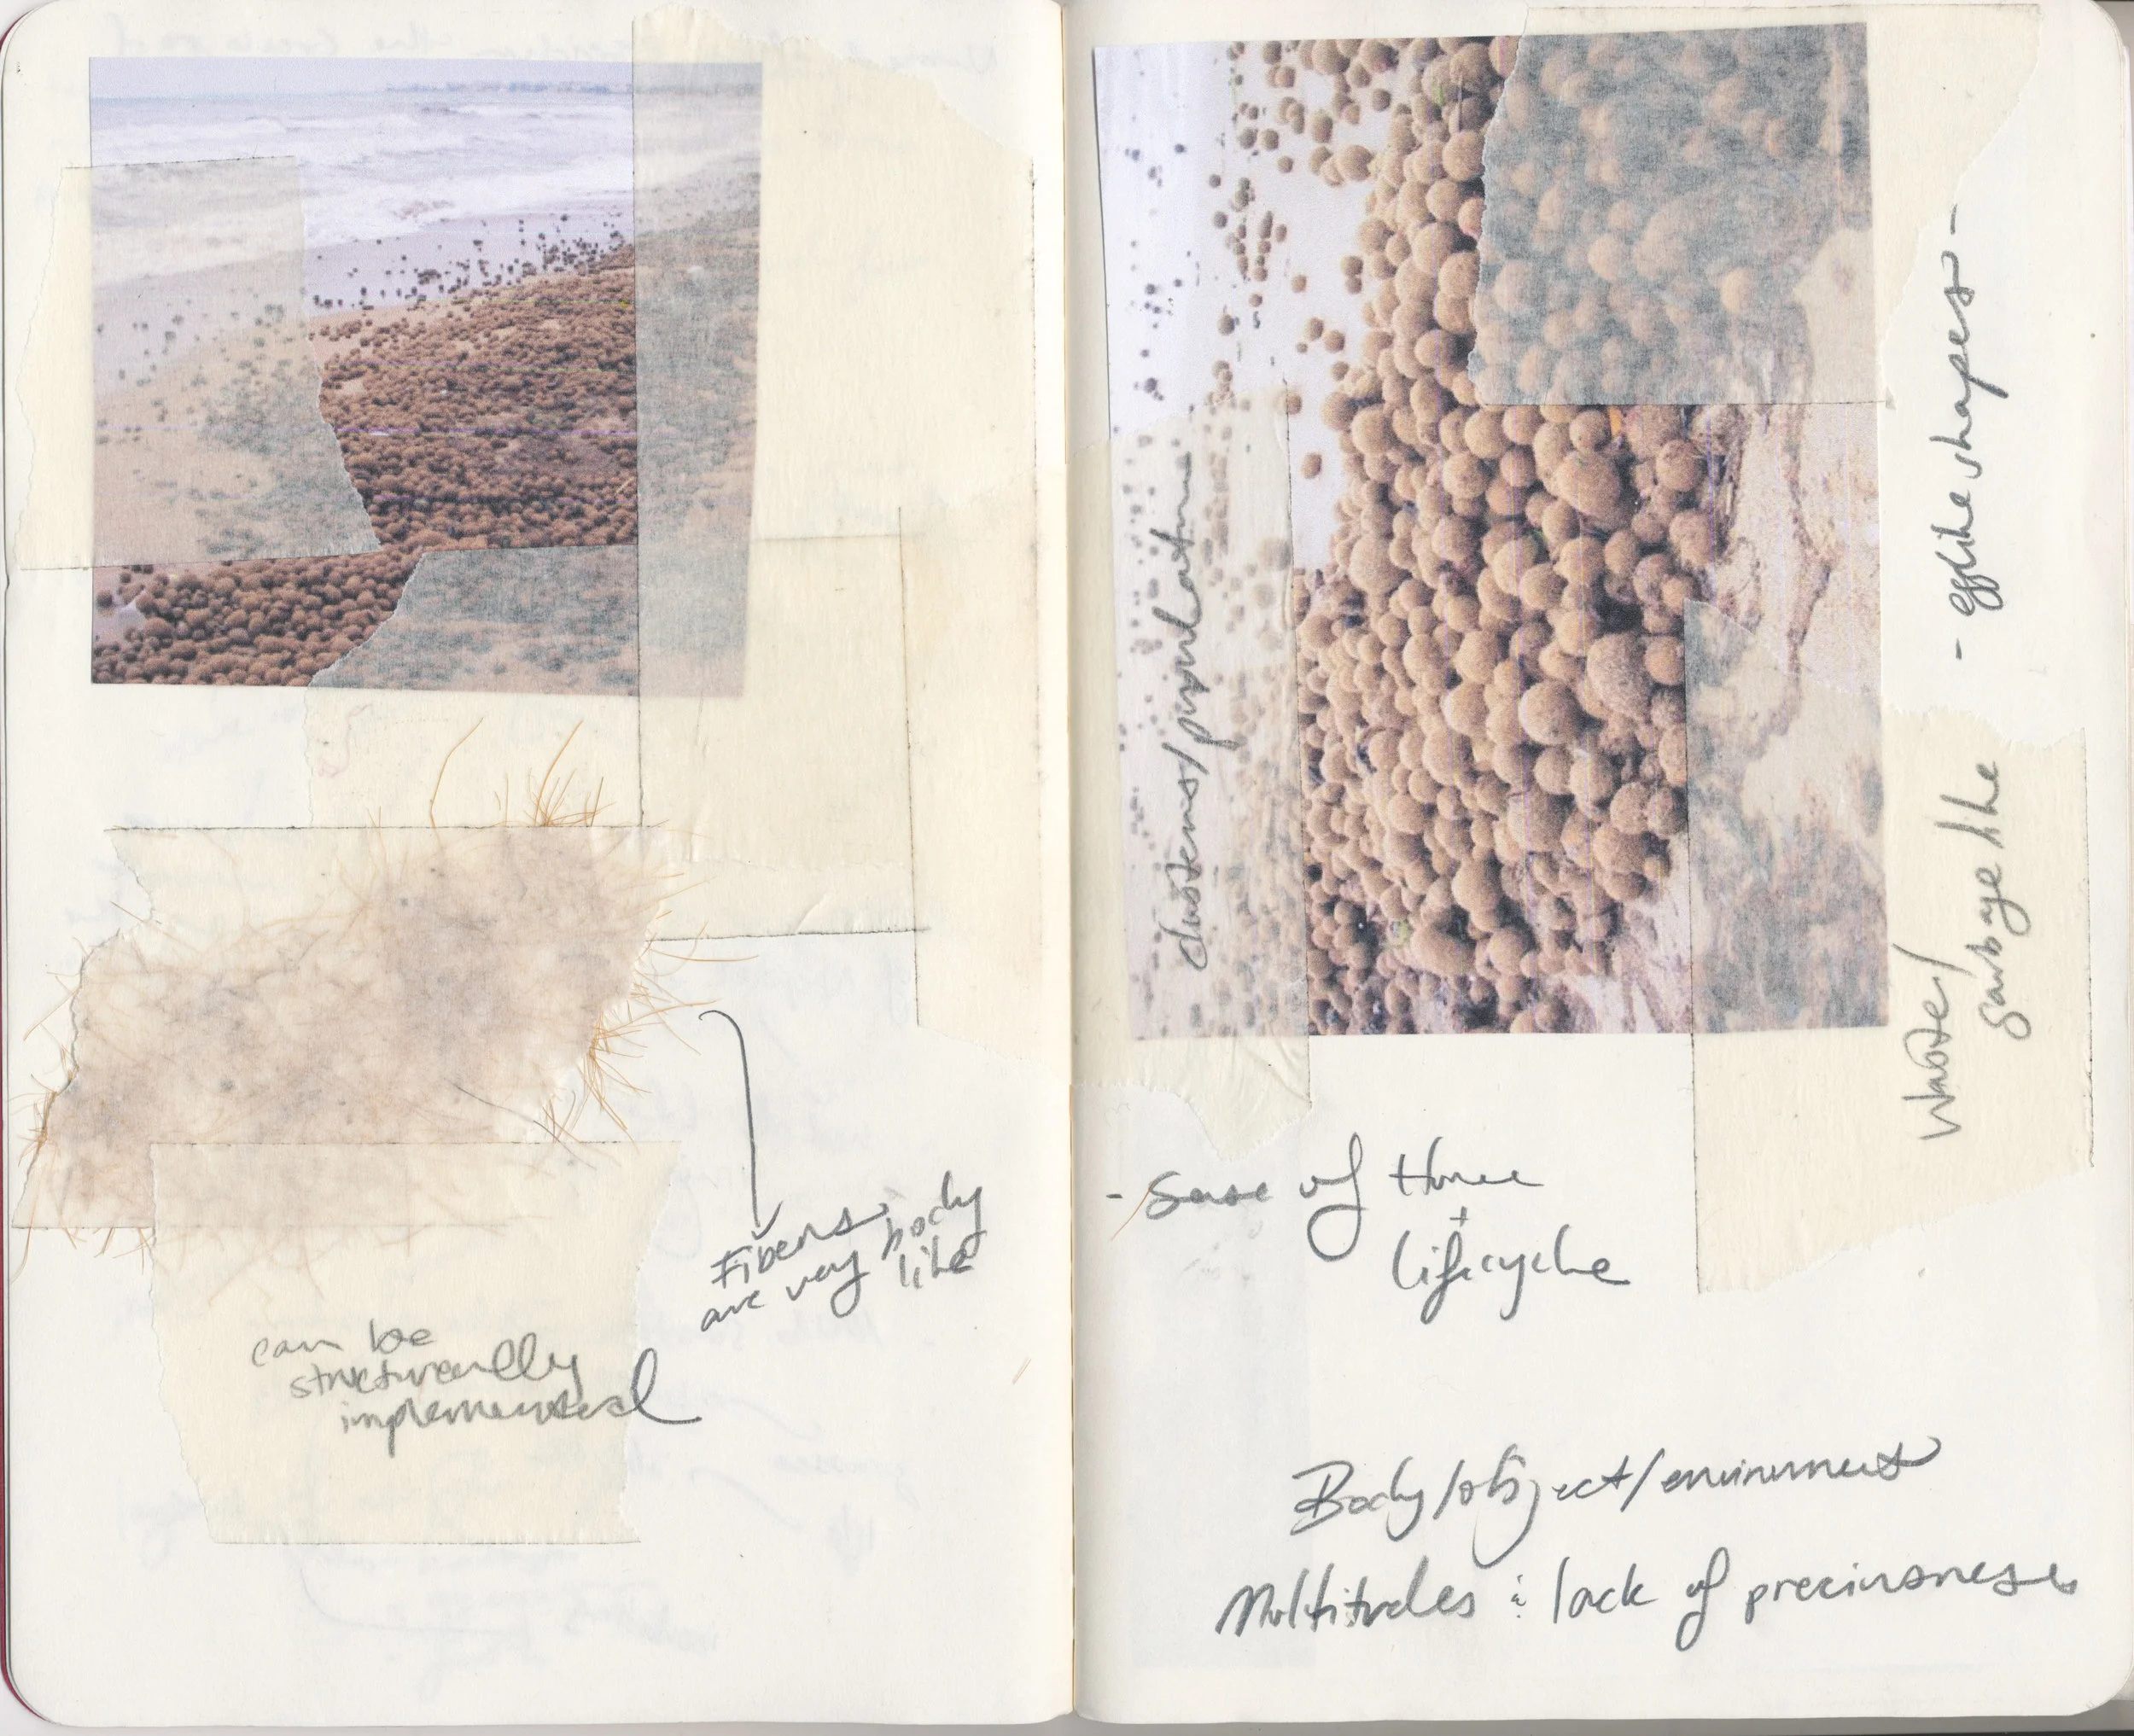 Fibers
are very body
like
can be
structurally
implemented
clusters/population
- egglike shapes -
waste/
garbage like
- Sense of time
+
lifecycle
Body/object/environment
Multitudes & lack of preciousness